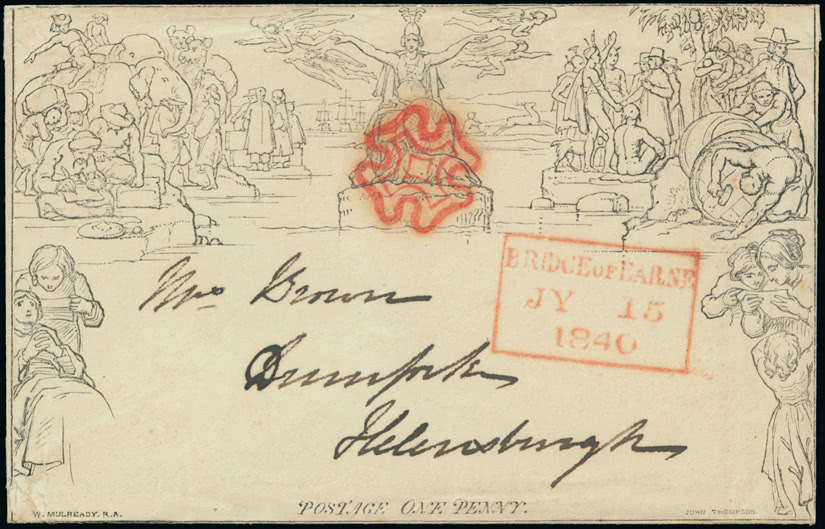 BRIDGE OF EARNE
JY 15
1840
Mrs Brown
Helensburgh
POSTAGE ONE PENNY.
W. MULREADY. R.A.
JOHN THOMPSON.